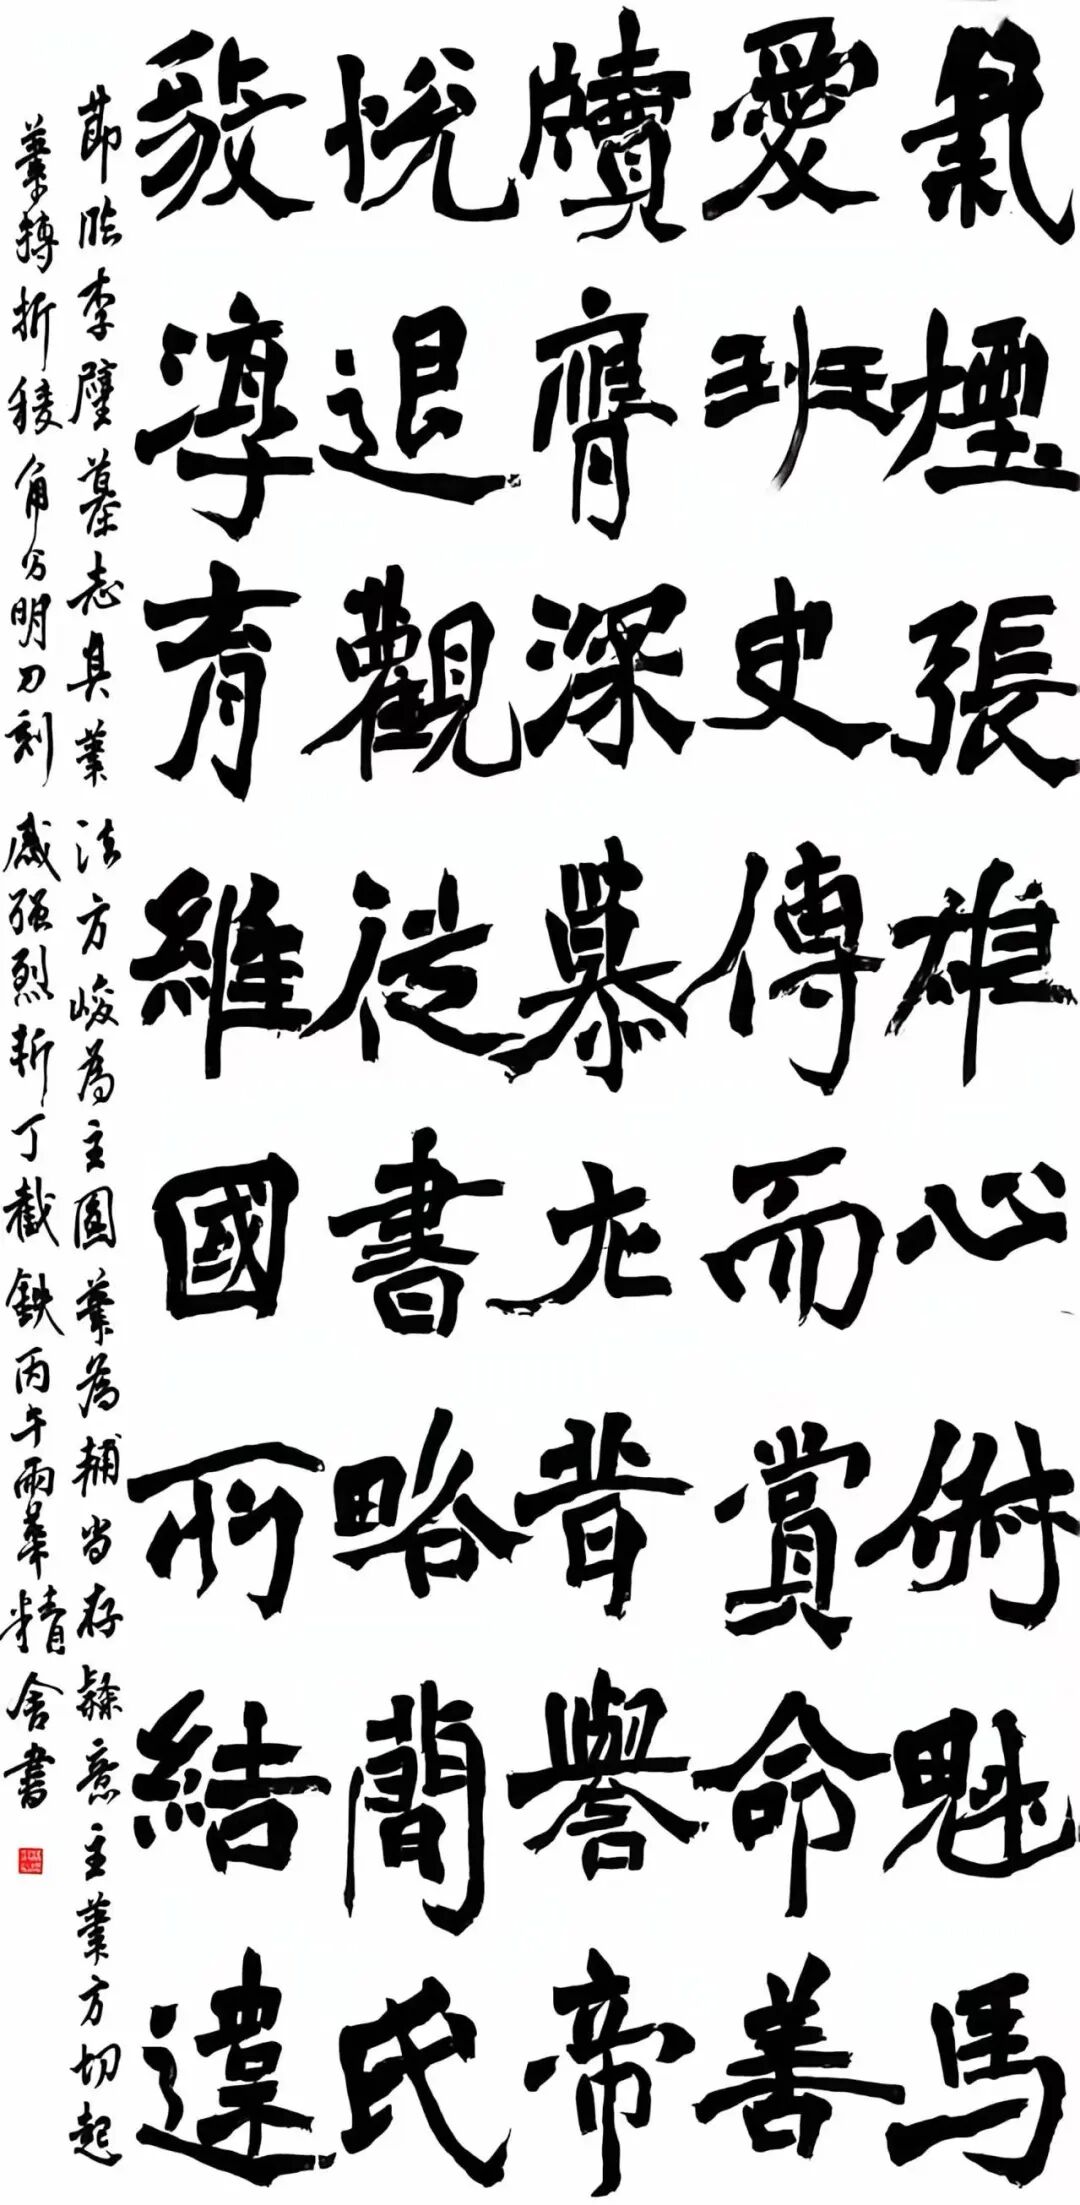 氣煙張雄心術魁馬
愛班史傳而賞命善
牘膺深慕尤昔譽帝
悅退觀從書略簡氏
毅淳有維國所結違
節臨李璧墓志其筆法方峻為主圓筆為輔當存疑意主筆方切起
筆轉折稜角分明刀刻感强烈斬丁截鉄丙午雨華精舍書